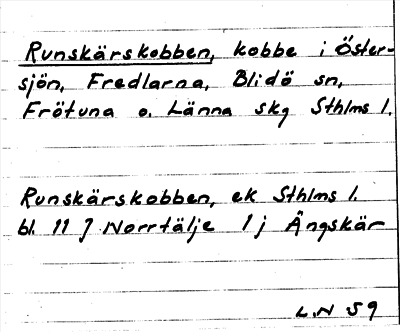 Runskärskobben, kobbe i Öster-
sjön, Fredlarna, Blidö sn,
Frötuna o. Länna skg Sthlms l.
Runskärskobben, ek Sthlms l.
bl. 11 J Norrtälje 1 j Ängskär
L.N 59